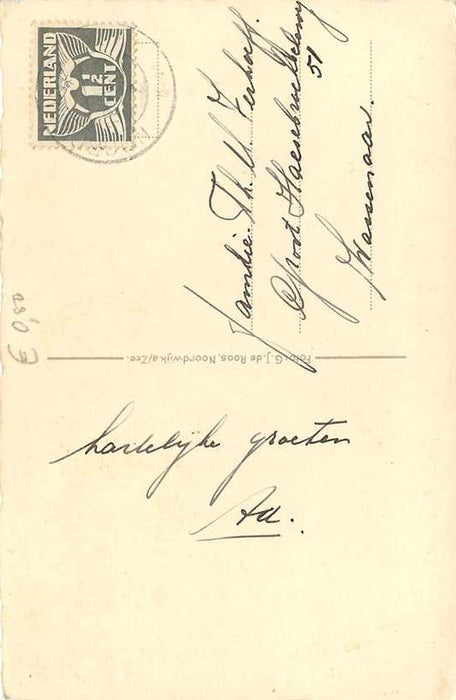 NEDERLAND
1½
CENT
Familie Th. M. Verhoef.
Groot Haesebroekscheweg
51
Wassenaar.
Foto: G. J. de Roos, Noordwijk a/Zee.
£ 0,85
hartelijke groeten
Ad.